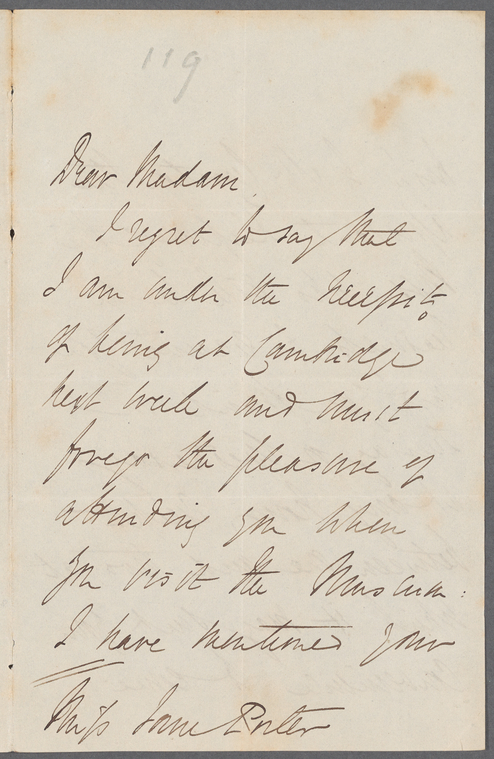 119
Dear Madam
I regret to say that
I am under the necessity
of being at Cambridge
next week and must
forego the pleasure of
attending you when
you visit the Museum:
I have mentioned your
Miss Jane Porter